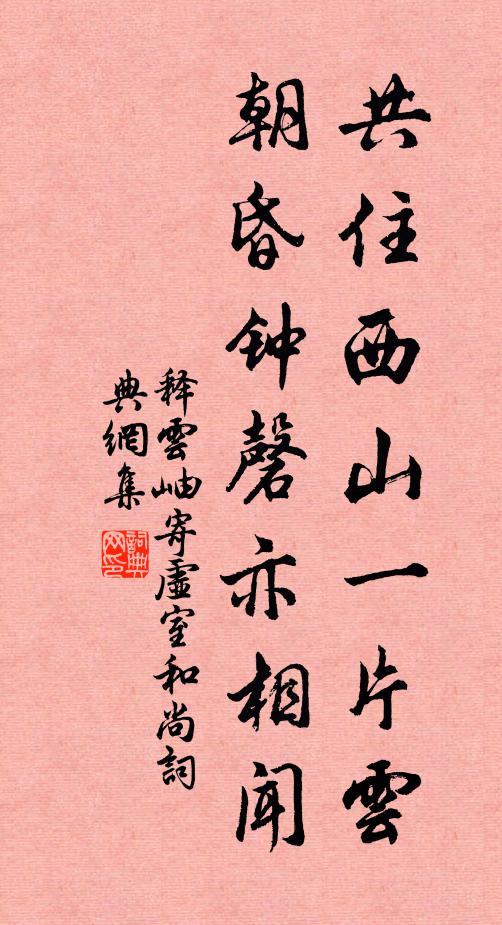 共住西山一片雲
朝昏钟磬亦相闻
释雲岫寄虛室和尚詞
典網集
詞典网印